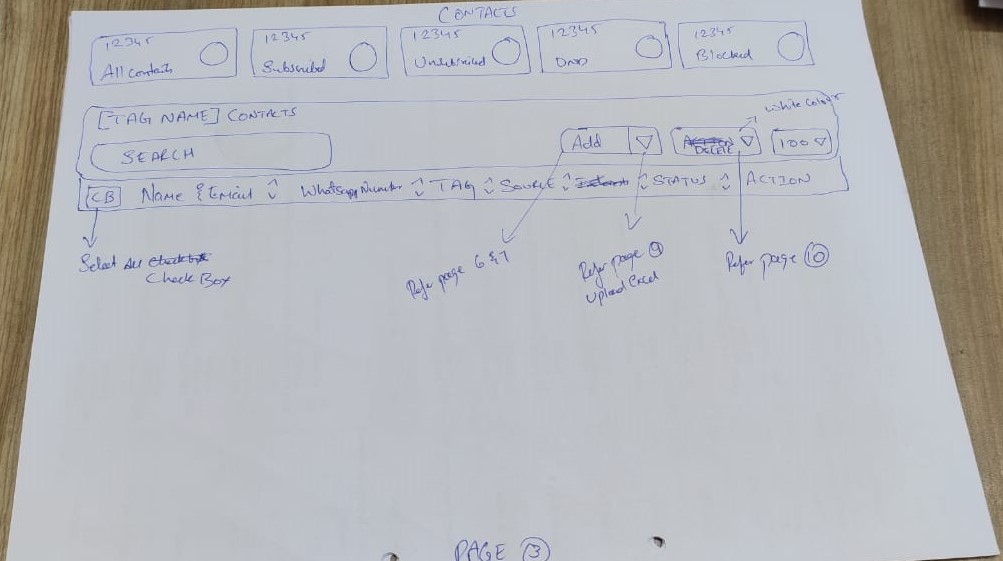 CONTACTS
12345
All contacts
12345
Subscribed
12345
Unsubscribed
12345
DND
12345
Blocked
[TAG NAME] CONTACTS
White Colour
SEARCH
Add
DELETE
100
CB Name & Email WhatsappNumber TAG SOURCE STATUS ACTION
Select All
Check Box
Refer page 6 & 7
Refer page 9
Upload Excel
Refer page 10
PAGE 3